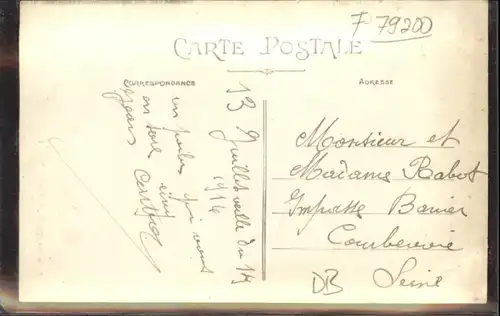 F 79200
CARTE POSTALE
CORRESPONDANCE
ADRESSE
13 Juillet veille du 14
1916
un poilu qui vous
Monsieur et
Madame Rabot
Impasse Barrier
Courbevoie
Seine
DB